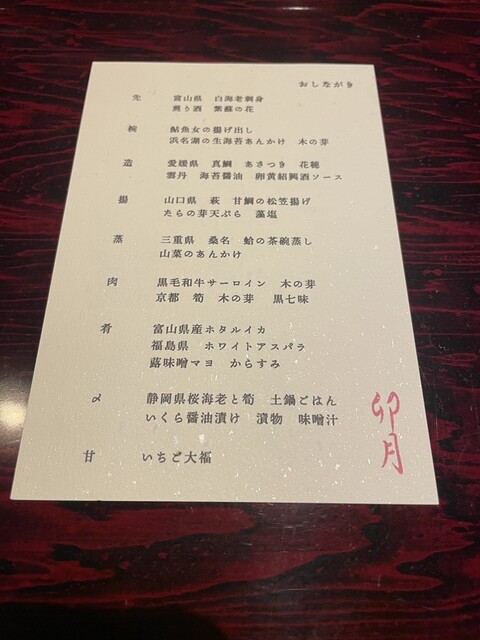 おしながき
先 富山県 白海老刺身
煎り酒 紫蘇の花
椀 鮎魚女の揚げ出し
浜名湖の生海苔あんかけ 木の芽
造 愛媛県 真鯛 あさつき 花穂
雲丹 海苔醤油 卵黄紹興酒ソース
揚 山口県 萩 甘鯛の松笠揚げ
たらの芽天ぷら 藻塩
蒸 三重県 桑名 蛤の茶碗蒸し
山菜のあんかけ
肉 黒毛和牛サーロイン 木の芽
京都 筍 木の芽 黒七味
肴 富山県産ホタルイカ
福島県 ホワイトアスパラ
蕗味噌マヨ からすみ
〆 静岡県桜海老と筍 土鍋ごはん
いくら醤油漬け 漬物 味噌汁
甘 いちご大福
卯月